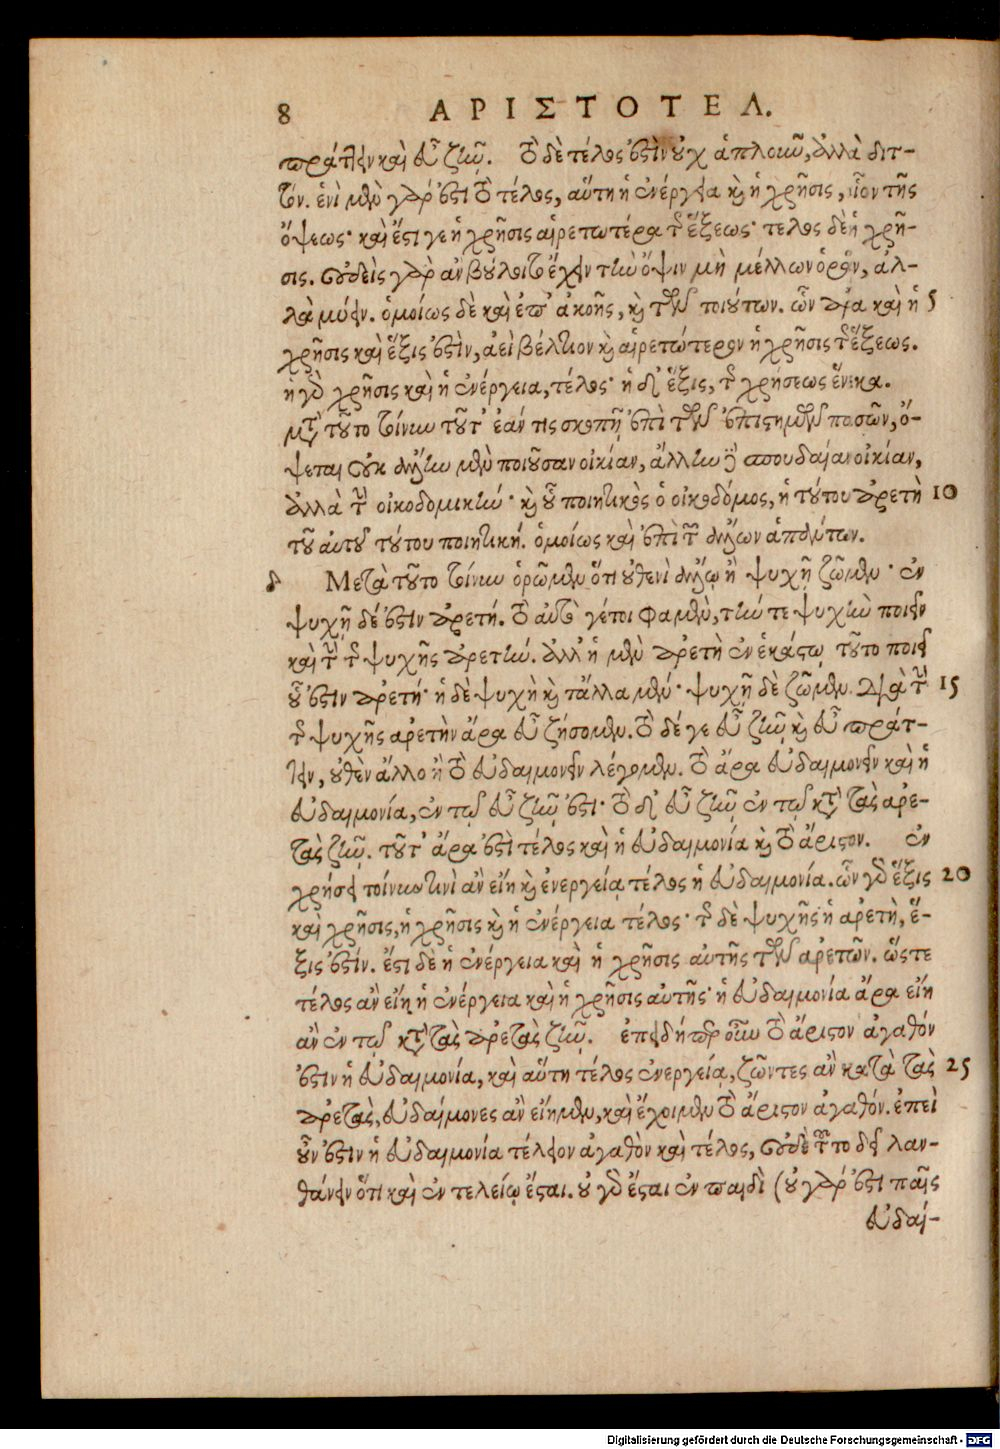 8 ΑΡΙΣΤΟΤΕΛ.
πράττειν καὶ εὖ ζῆν. τὸ δὲ τέλος ἐστὶν οὐχ ἁπλοῦν, ἀλλὰ διτ-
τόν. ἐνίων μὲν γάρ ἐστι τὸ τέλος, αὕτη ἡ ἐνέργεια καὶ ἡ χρῆσις, οἷον τῆς
ὄψεως· καὶ ἔστι γε ἡ χρῆσις αἱρετωτέρα τῆς ἕξεως· τέλος δὲ ἡ χρῆ-
σις. οὐδεὶς γὰρ ἂν βούλοιτο ἔχειν τὴν ὄψιν μὴ μέλλων ὁρᾶν, ἀλ-
λὰ μύειν. ὁμοίως δὲ καὶ ἐπ' ἀκοῆς, καὶ τῶν τοιούτων. ὧν ἄρα καὶ ἡ 5
χρῆσις καὶ ἕξις ἐστὶν, ἀεὶ βέλτιον καὶ αἱρετώτερον ἡ χρῆσις τῆς ἕξεως.
ἡ γὰρ χρῆσις καὶ ἡ ἐνέργεια, τέλος· ἡ δ' ἕξις, τῆς χρήσεως ἕνεκα.
μετὰ τοῦτο τοίνυν τοῦτ' ἐάν τις σκοπῇ ἐπὶ τῶν ἐπιστημῶν πασῶν, ὄ-
ψεται οὐκ ἄλλην μὲν ποιοῦσαν οἰκίαν, ἄλλην δὲ σπουδαίαν οἰκίαν,
ἀλλὰ τὴν οἰκοδομικήν· καὶ οὗ ποιητικὸς ὁ οἰκοδόμος, ἡ τούτου ἀρετὴ 10
τοῦ αὐτοῦ τούτου ποιητική. ὁμοίως καὶ ἐπὶ τῶν ἄλλων ἁπάντων.
δ Μετὰ τοῦτο τοίνυν ὁρῶμεν ὅτι οὐθενὶ ἄλλῳ ἢ ψυχῇ ζῶμεν· ἐν
ψυχῇ δέ ἐστιν ἀρετή. τὸ αὐτό γέ τοι φαμὲν, τήν τε ψυχὴν ποιεῖν
καὶ τὴν τῆς ψυχῆς ἀρετήν. ἀλλ' ἡ μὲν ἀρετὴ ἐν ἑκάστῳ τοῦτο ποιεῖ
οὗ ἐστιν ἀρετή· ἡ δὲ ψυχὴ καὶ τἄλλα μέν· ψυχῇ δὲ ζῶμεν. διὰ τὴν 15
τῆς ψυχῆς ἀρετὴν ἄρα εὖ ζήσομεν. τὸ δέ γε εὖ ζῆν καὶ εὖ πράτ-
τειν, οὐθὲν ἄλλο ἢ τὸ εὐδαιμονεῖν λέγομεν. τὸ ἄρα εὐδαιμονεῖν καὶ ἡ
εὐδαιμονία, ἐν τῷ εὖ ζῆν ἐστι· τὸ δ' εὖ ζῆν ἐν τῷ κατὰ τὰς ἀρε-
τὰς ζῆν. τοῦτ' ἄρα ἐστὶ τέλος καὶ ἡ εὐδαιμονία καὶ τὸ ἄριστον. ἐν
χρήσει τοίνυν τινὶ ἂν εἴη καὶ ἐνεργείᾳ τέλος ἡ εὐδαιμονία. ὧν γὰρ ἕξις 20
καὶ χρῆσις, ἡ χρῆσις καὶ ἡ ἐνέργεια τέλος· τῆς δὲ ψυχῆς ἡ ἀρετὴ, ἕ-
ξις ἐστίν. ἔστι δὲ ἡ ἐνέργεια καὶ ἡ χρῆσις αὐτῆς τῶν ἀρετῶν. ὥστε
τέλος ἂν εἴη ἡ ἐνέργεια καὶ ἡ χρῆσις αὐτῆς· ἡ εὐδαιμονία ἄρα εἴη
ἂν ἐν τῷ κατὰ τὰς ἀρετὰς ζῆν. ἐπειδήπερ οὖν τὸ ἄριστον ἀγαθόν
ἐστιν ἡ εὐδαιμονία, καὶ αὕτη τέλος ἐνεργείᾳ, ζῶντες ἂν κατὰ τὰς 25
ἀρετὰς, εὐδαίμονες ἂν εἴημεν, καὶ ἔχοιμεν τὸ ἄριστον ἀγαθόν. ἐπεὶ
οὖν ἐστιν ἡ εὐδαιμονία τέλειον ἀγαθὸν καὶ τέλος, οὐδὲ τοῦτο δεῖ λαν-
θάνειν ὅτι καὶ ἐν τελείῳ ἔσται. οὐ γὰρ ἔσται ἐν παιδὶ (οὐ γάρ ἐστι παῖς
εὐδαί-
Digitalisierung gefördert durch die Deutsche Forschungsgemeinschaft - DFG